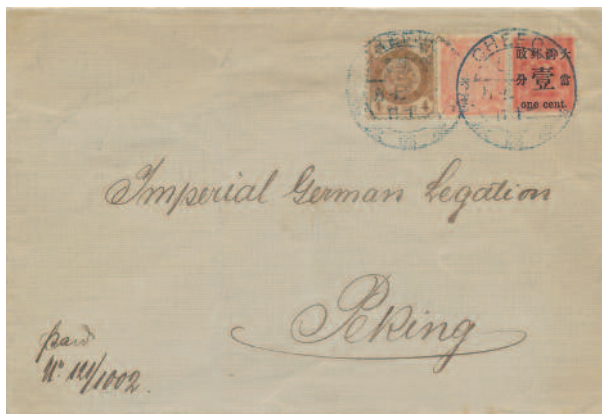 CHEFOO
大清郵政
當壹分
one cent.
4
Imperial German Legation
Peking
paid
No 121/1002.